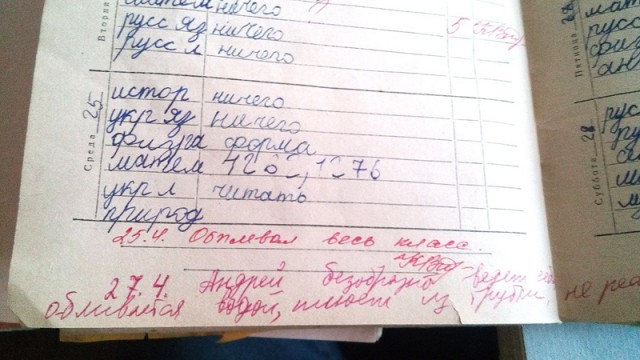 Вторник
матем ничего
русс яз ничего
русс л ничего
5
Среда 25
истор ничего
укр яз ничего
физра форма
матем
укр л читать
природ
25.4. Обплевал весь класс.
27.4. Андрей безобразно ведет себя
обливается водой, плюет из трубки, не реа
Пятница
мат
рус
физ
Суббота 28
рус